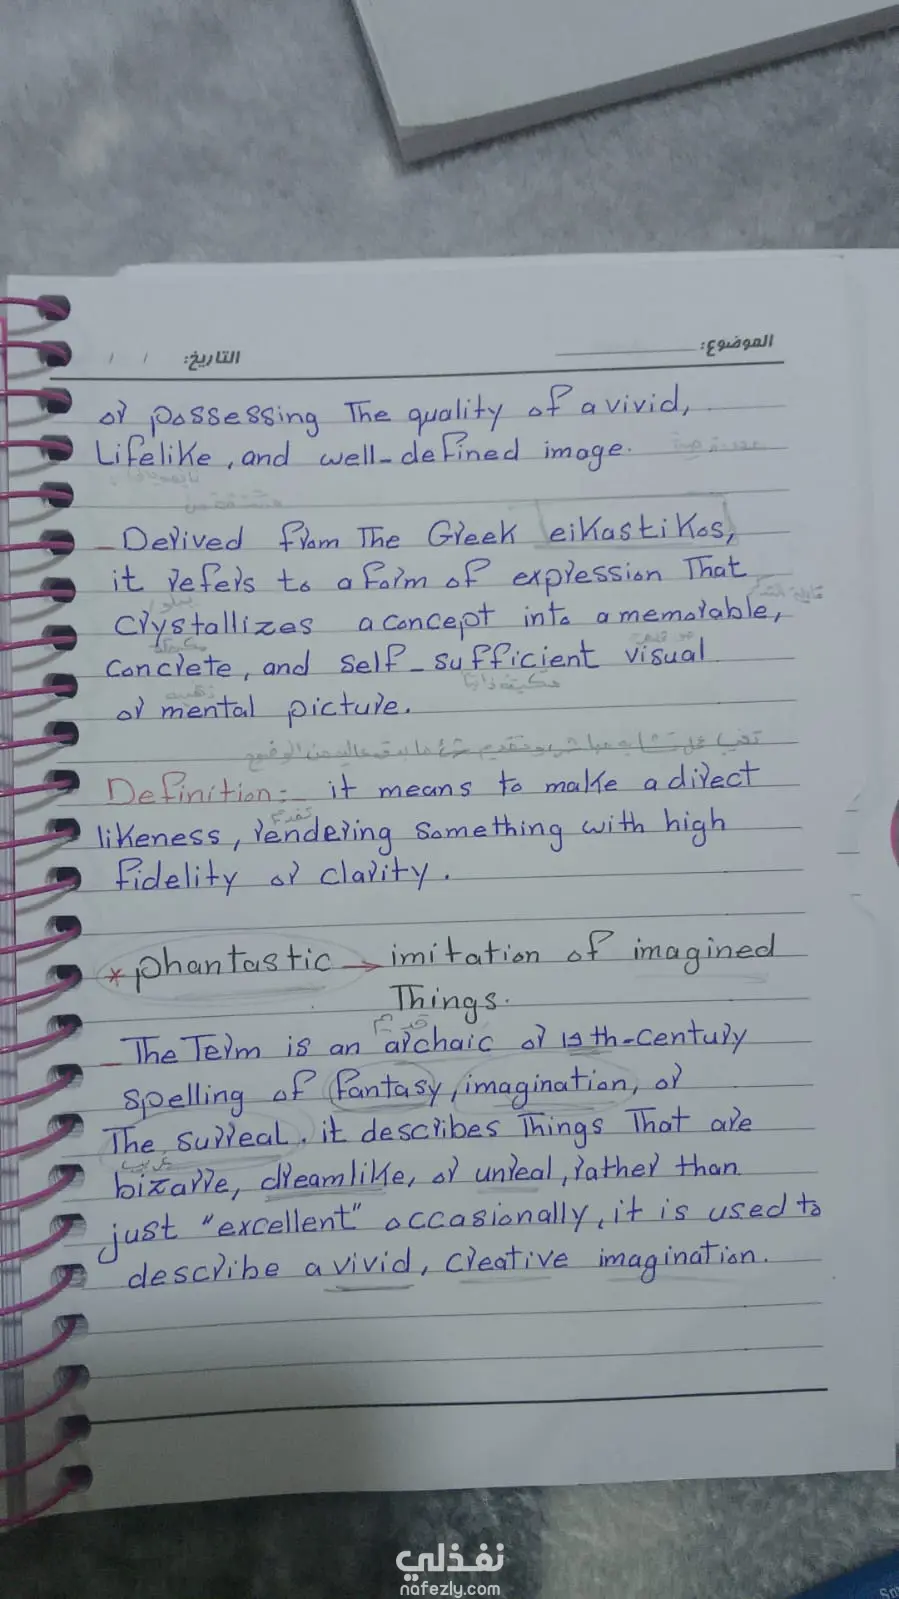 الموضوع:
التاريخ: / /
or possessing The quality of a vivid,
Lifelike, and well-defined image.
Derived from The Greek eikastikos,
it refers to a form of expression That
Crystallizes a concept into a memorable,
Concrete, and self-sufficient visual
or mental picture.
Definition:- it means to make a direct
likeness, rendering something with high
fidelity or clarity.
* phantastic → imitation of imagined
Things.
قديم
- The Term is an archaic or 19th-century
spelling of fantasy, imagination, or
The surreal. it describes Things That are
غريب
bizarre, dreamlike, or unreal, rather than
just "excellent" occasionally, it is used to
describe a vivid, creative imagination.
نفذلي
nafezly.com